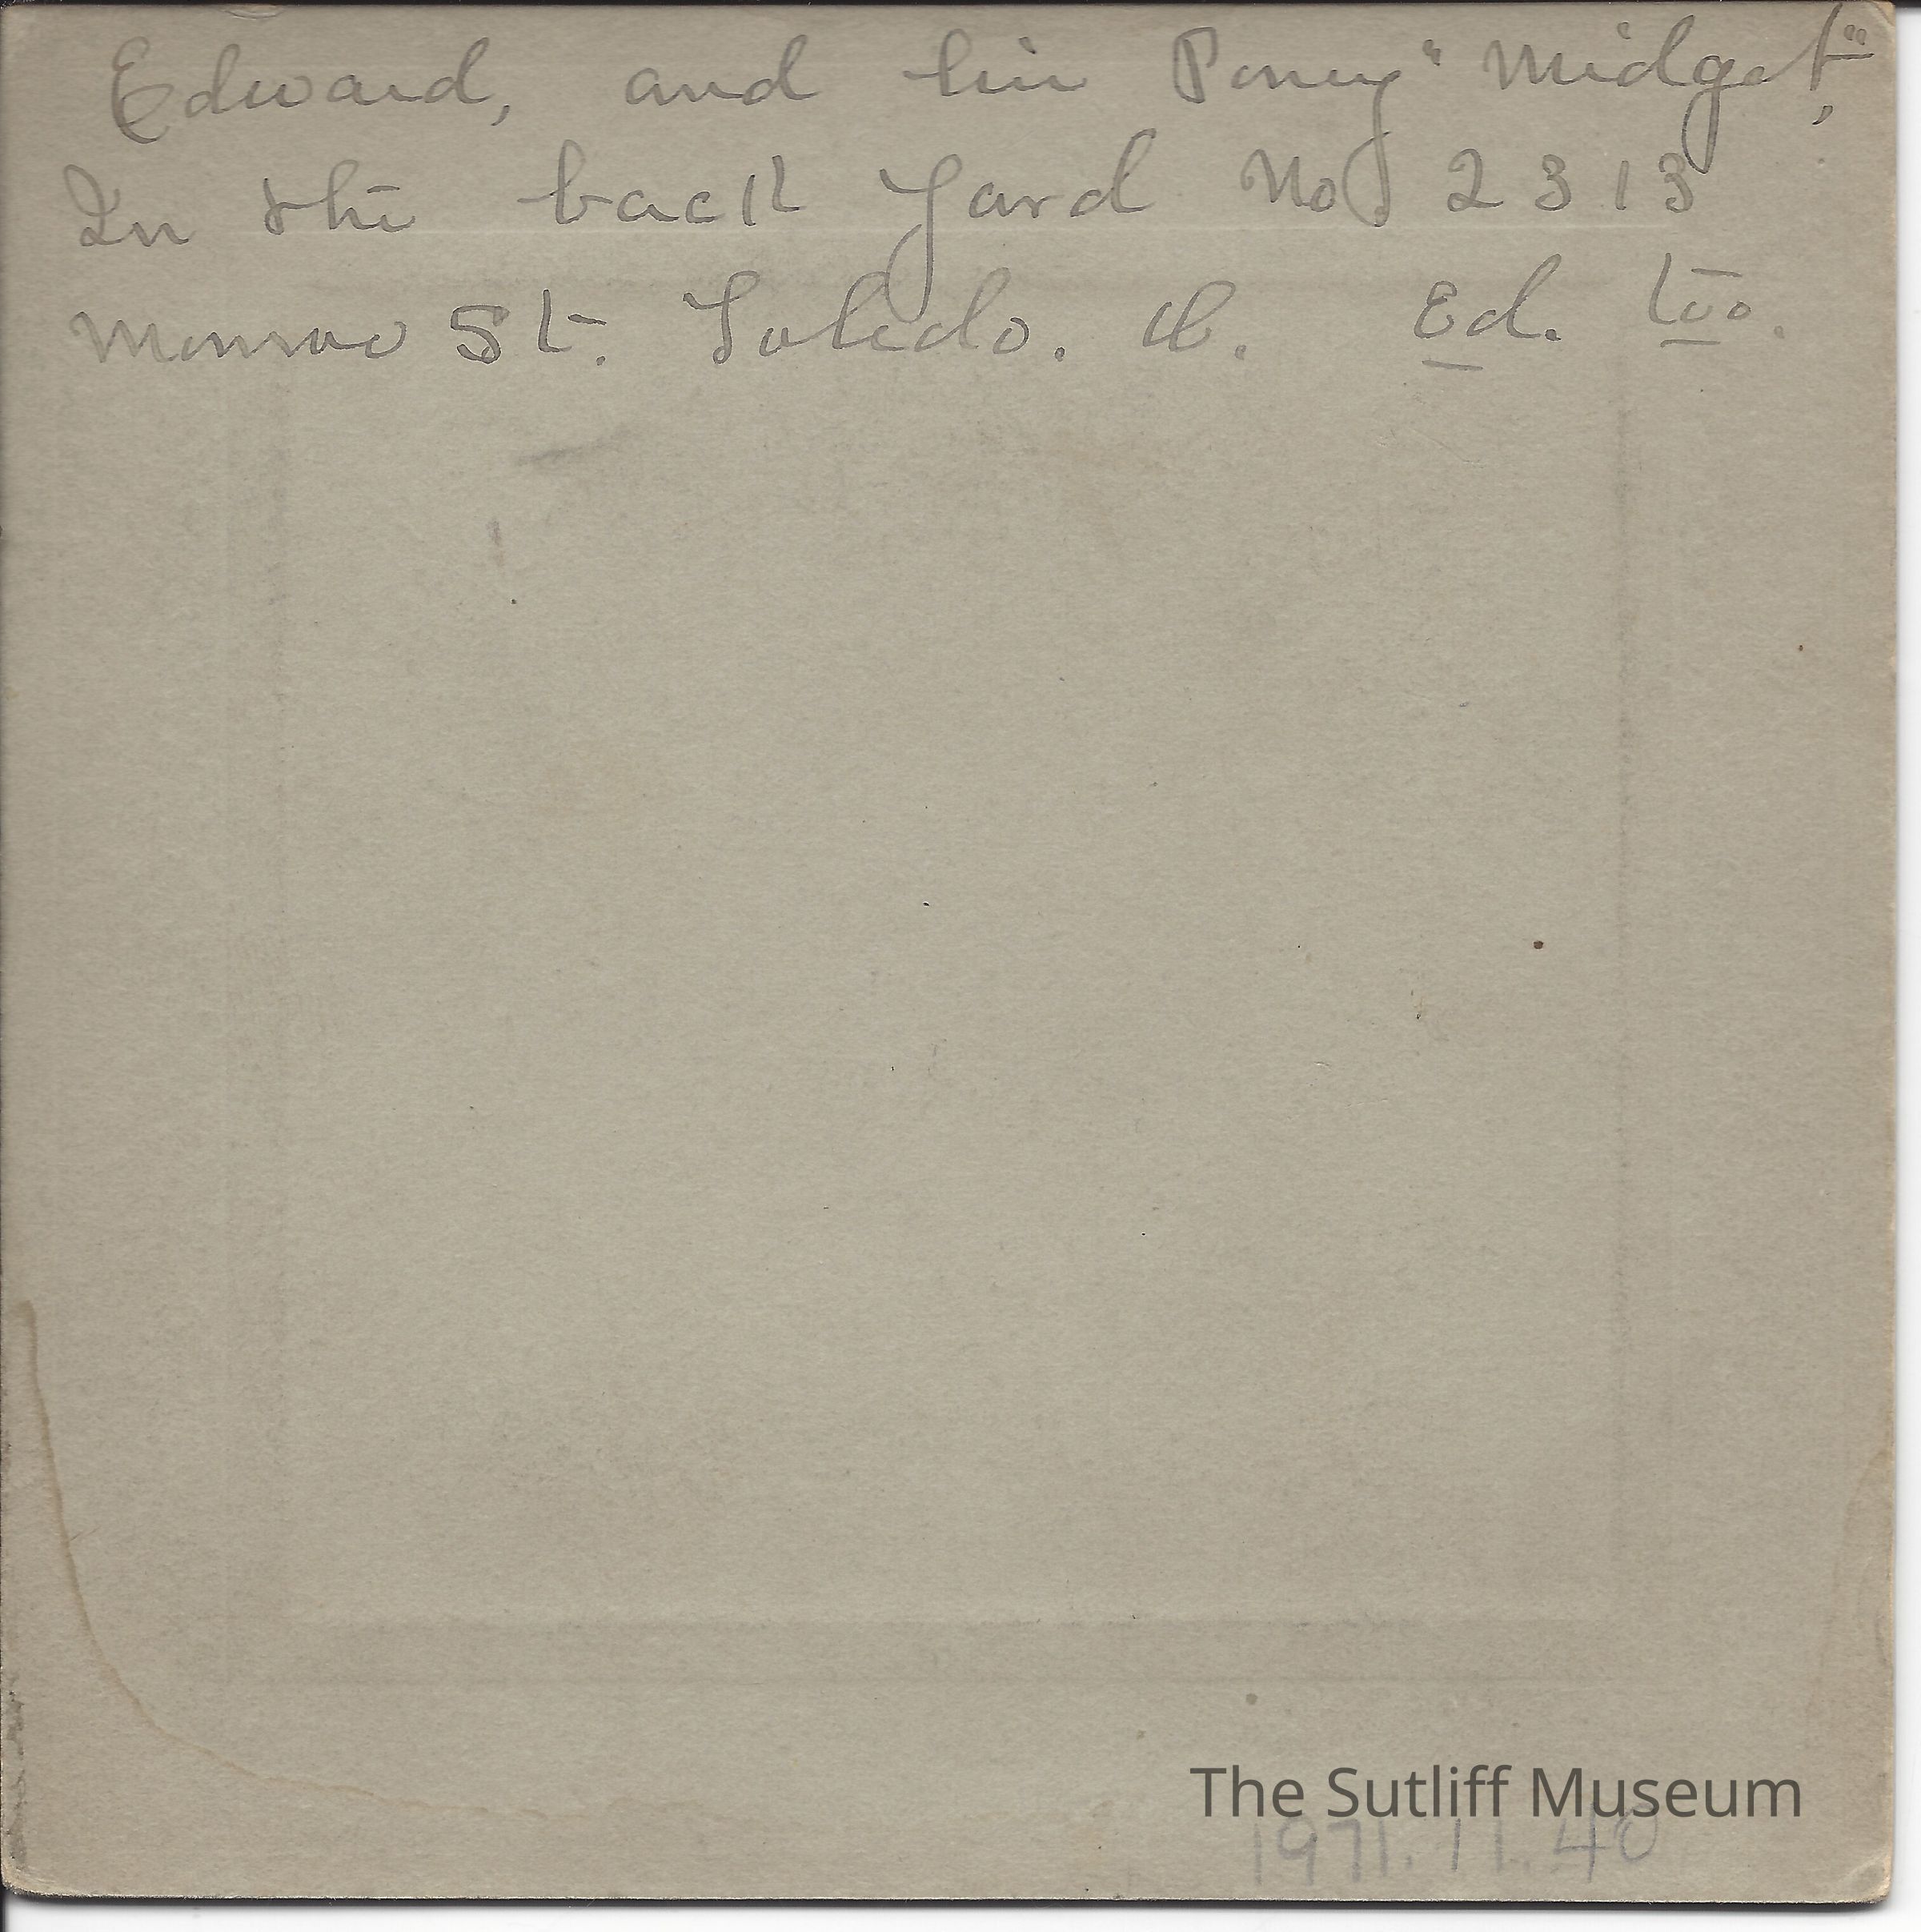 Edward, and his Pony "Midget",
In the back Yard No 2313
Monroe St. Toledo. O. Ed. too.
The Sutliff Museum
1971.11.40